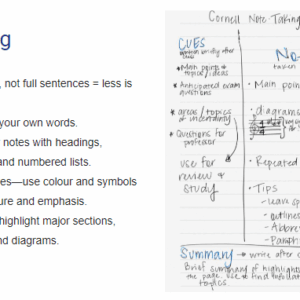 g
, not full sentences = less is
your own words.
notes with headings,
and numbered lists.
es—use colour and symbols
ure and emphasis.
highlight major sections,
nd diagrams.
Cornell Note Taking
CUES
written briefly after
class
* Main points
topics/ideas
* Anticipated exam
questions
* areas/topics
of uncertainty
* Questions for
professor
use for
review &
study
No
taken
• Main poin
• diagrams
• Repeated
• Tips
- leave sp
- outlines
- Abbre
- Paraph
Summary → write after c
Brief summary of highlights
the page. use to find info lat
topics